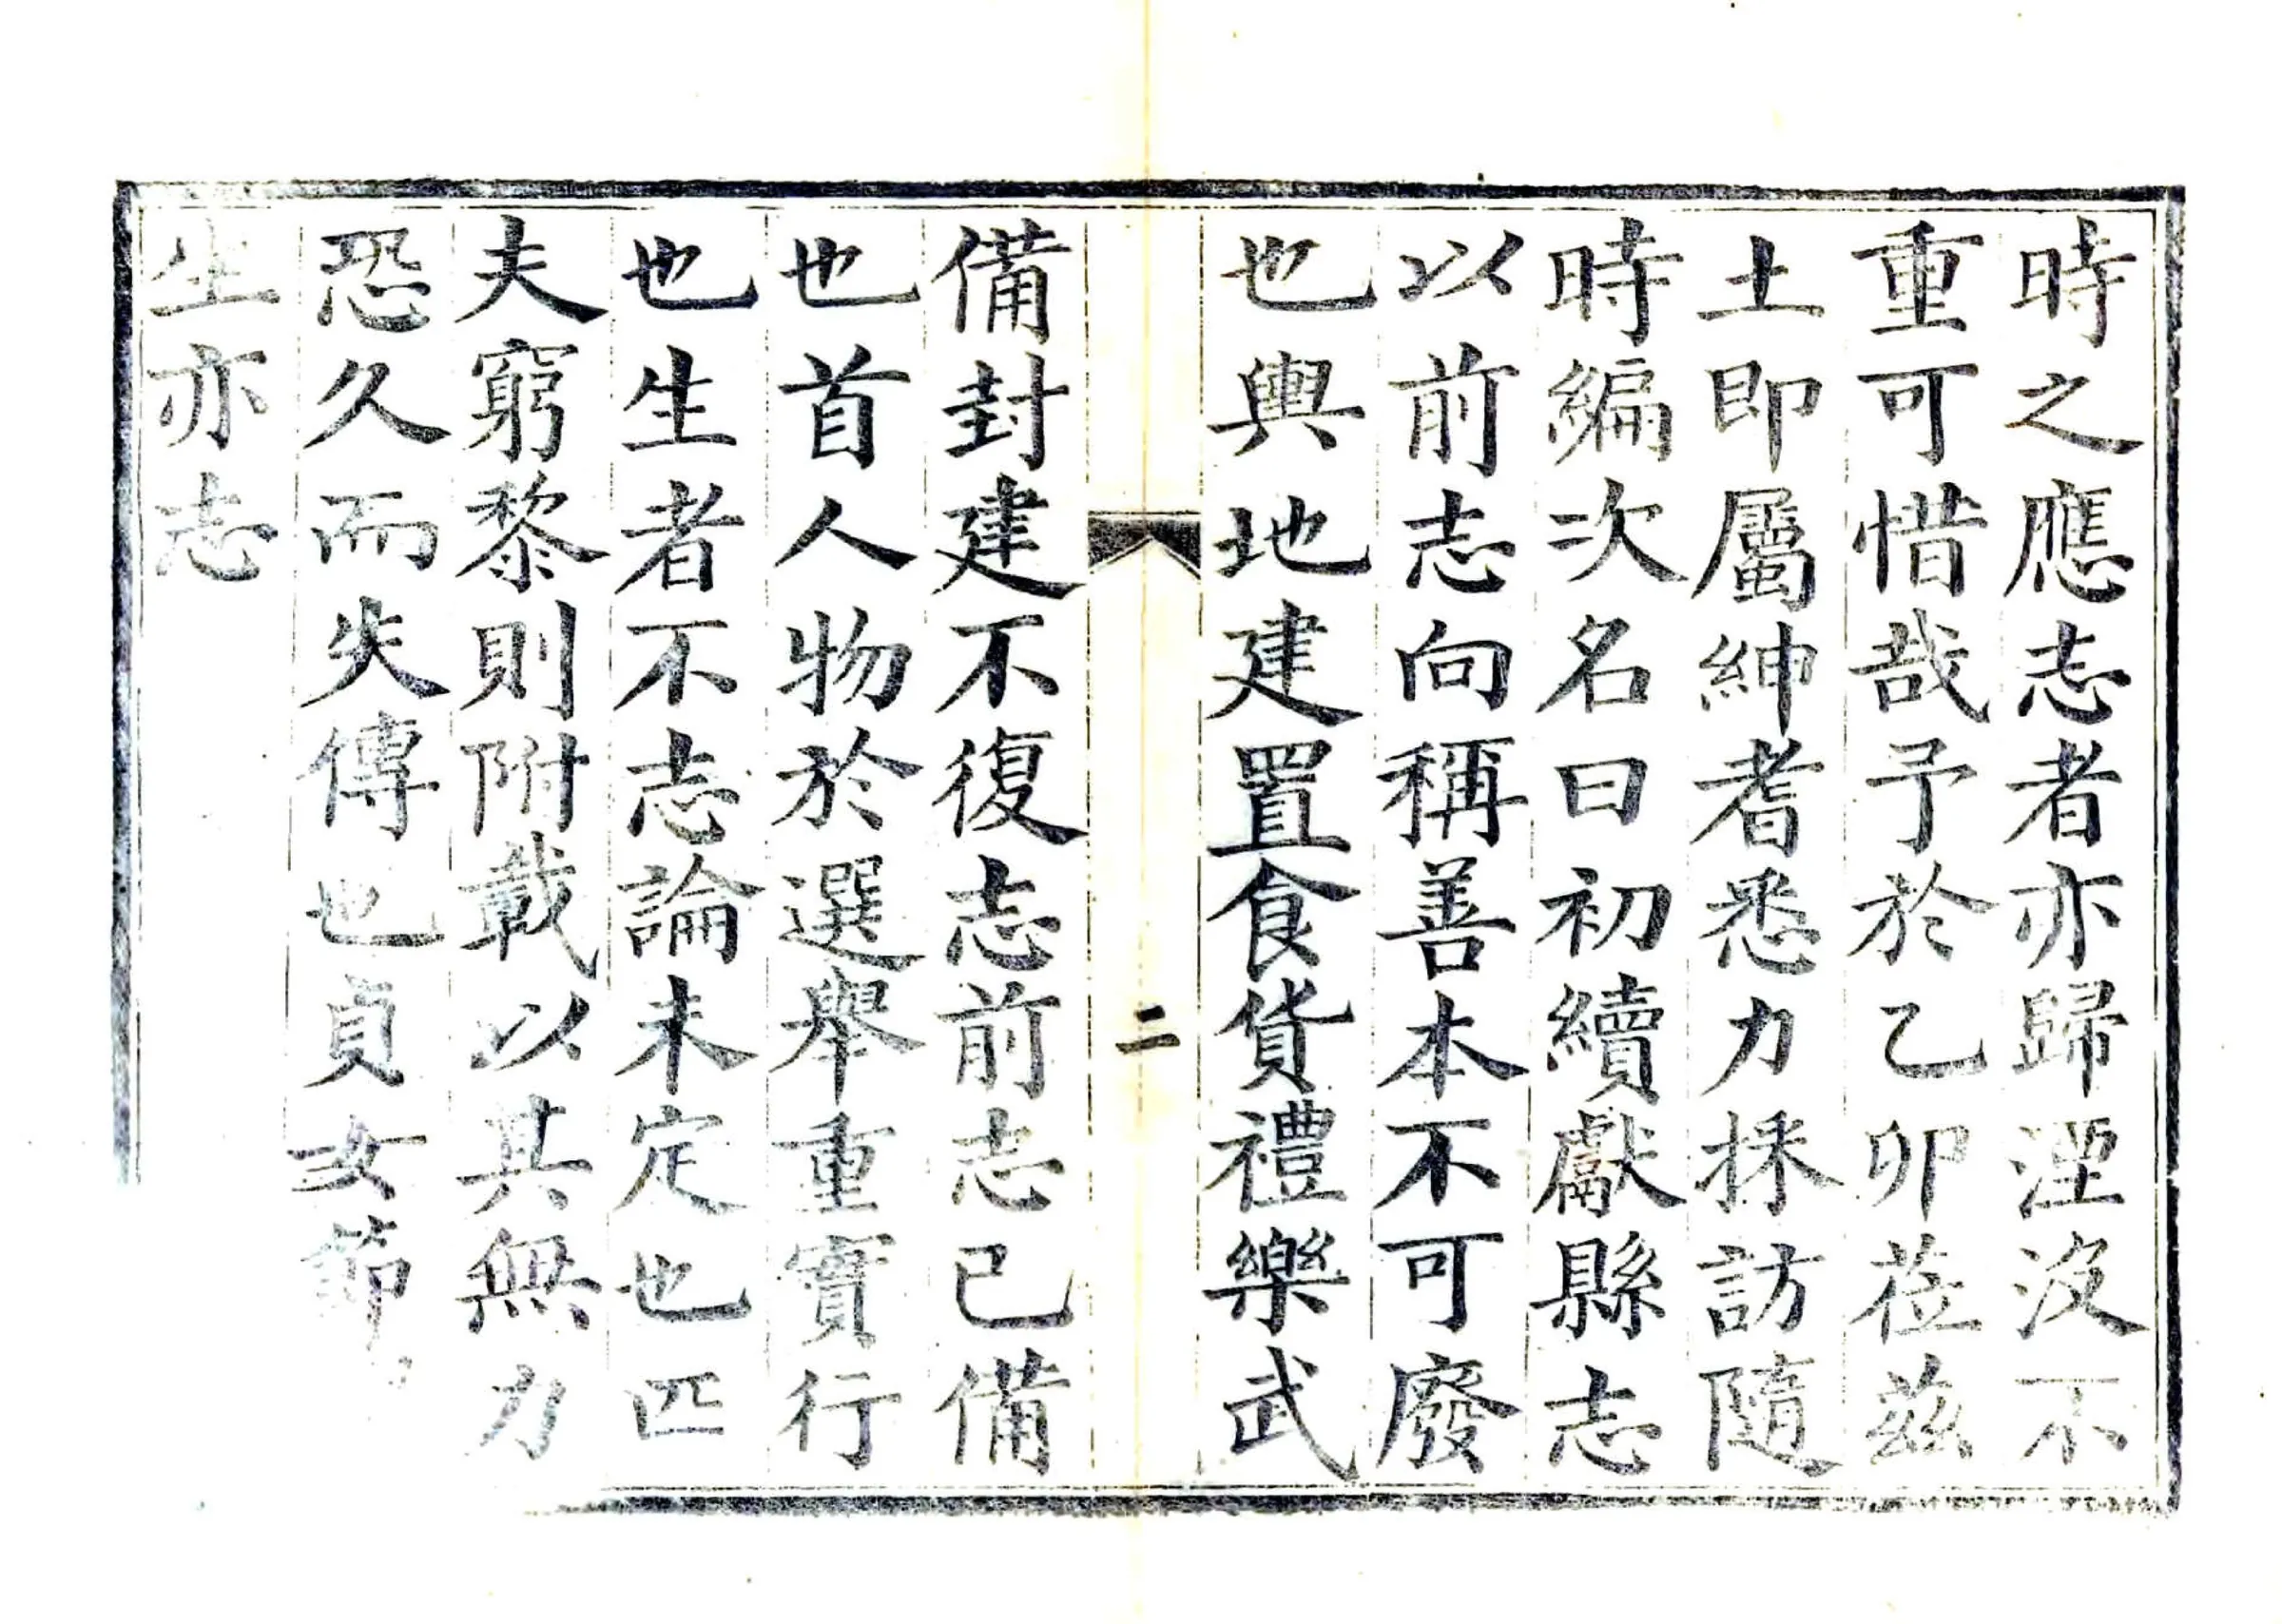 時之應志者亦歸湮没不
重可惜哉予於乙卯莅茲
土即屬紳耆悉力採訪隨
時編次名曰初續獻縣志
以前志向稱善本不可廢
也輿地建置食貨禮樂武
二
備封建不復志前志已備
也首人物於選舉重實行
也生者不志論未定也匹
夫窮黎則附載以其無力
恐久而失傳也貞女節
生亦志